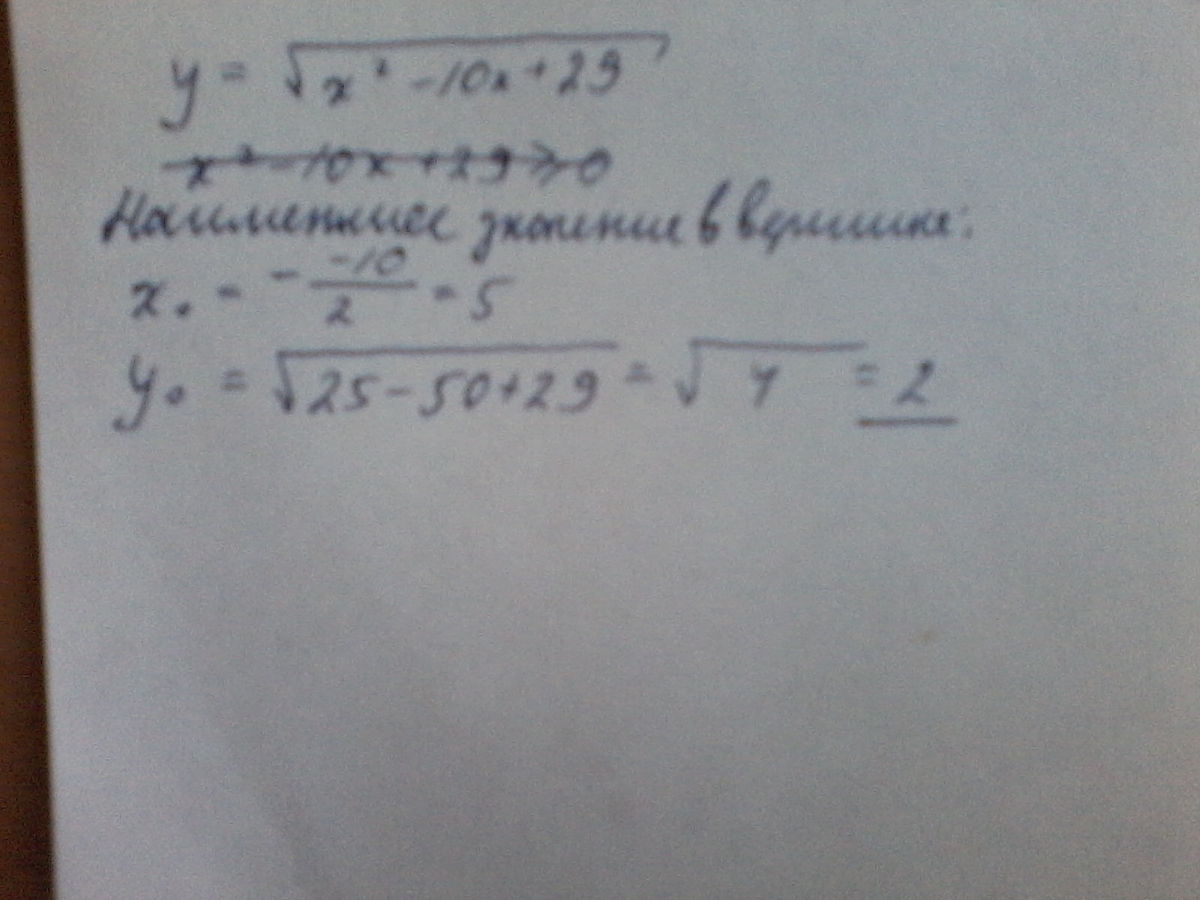 y = √(x² -10x+29)
x² -10x+29≥0
Наименьшее значение в вершине:
x₀ = - -10/2 = 5
y₀ = √(25-50+29) = √4 = 2